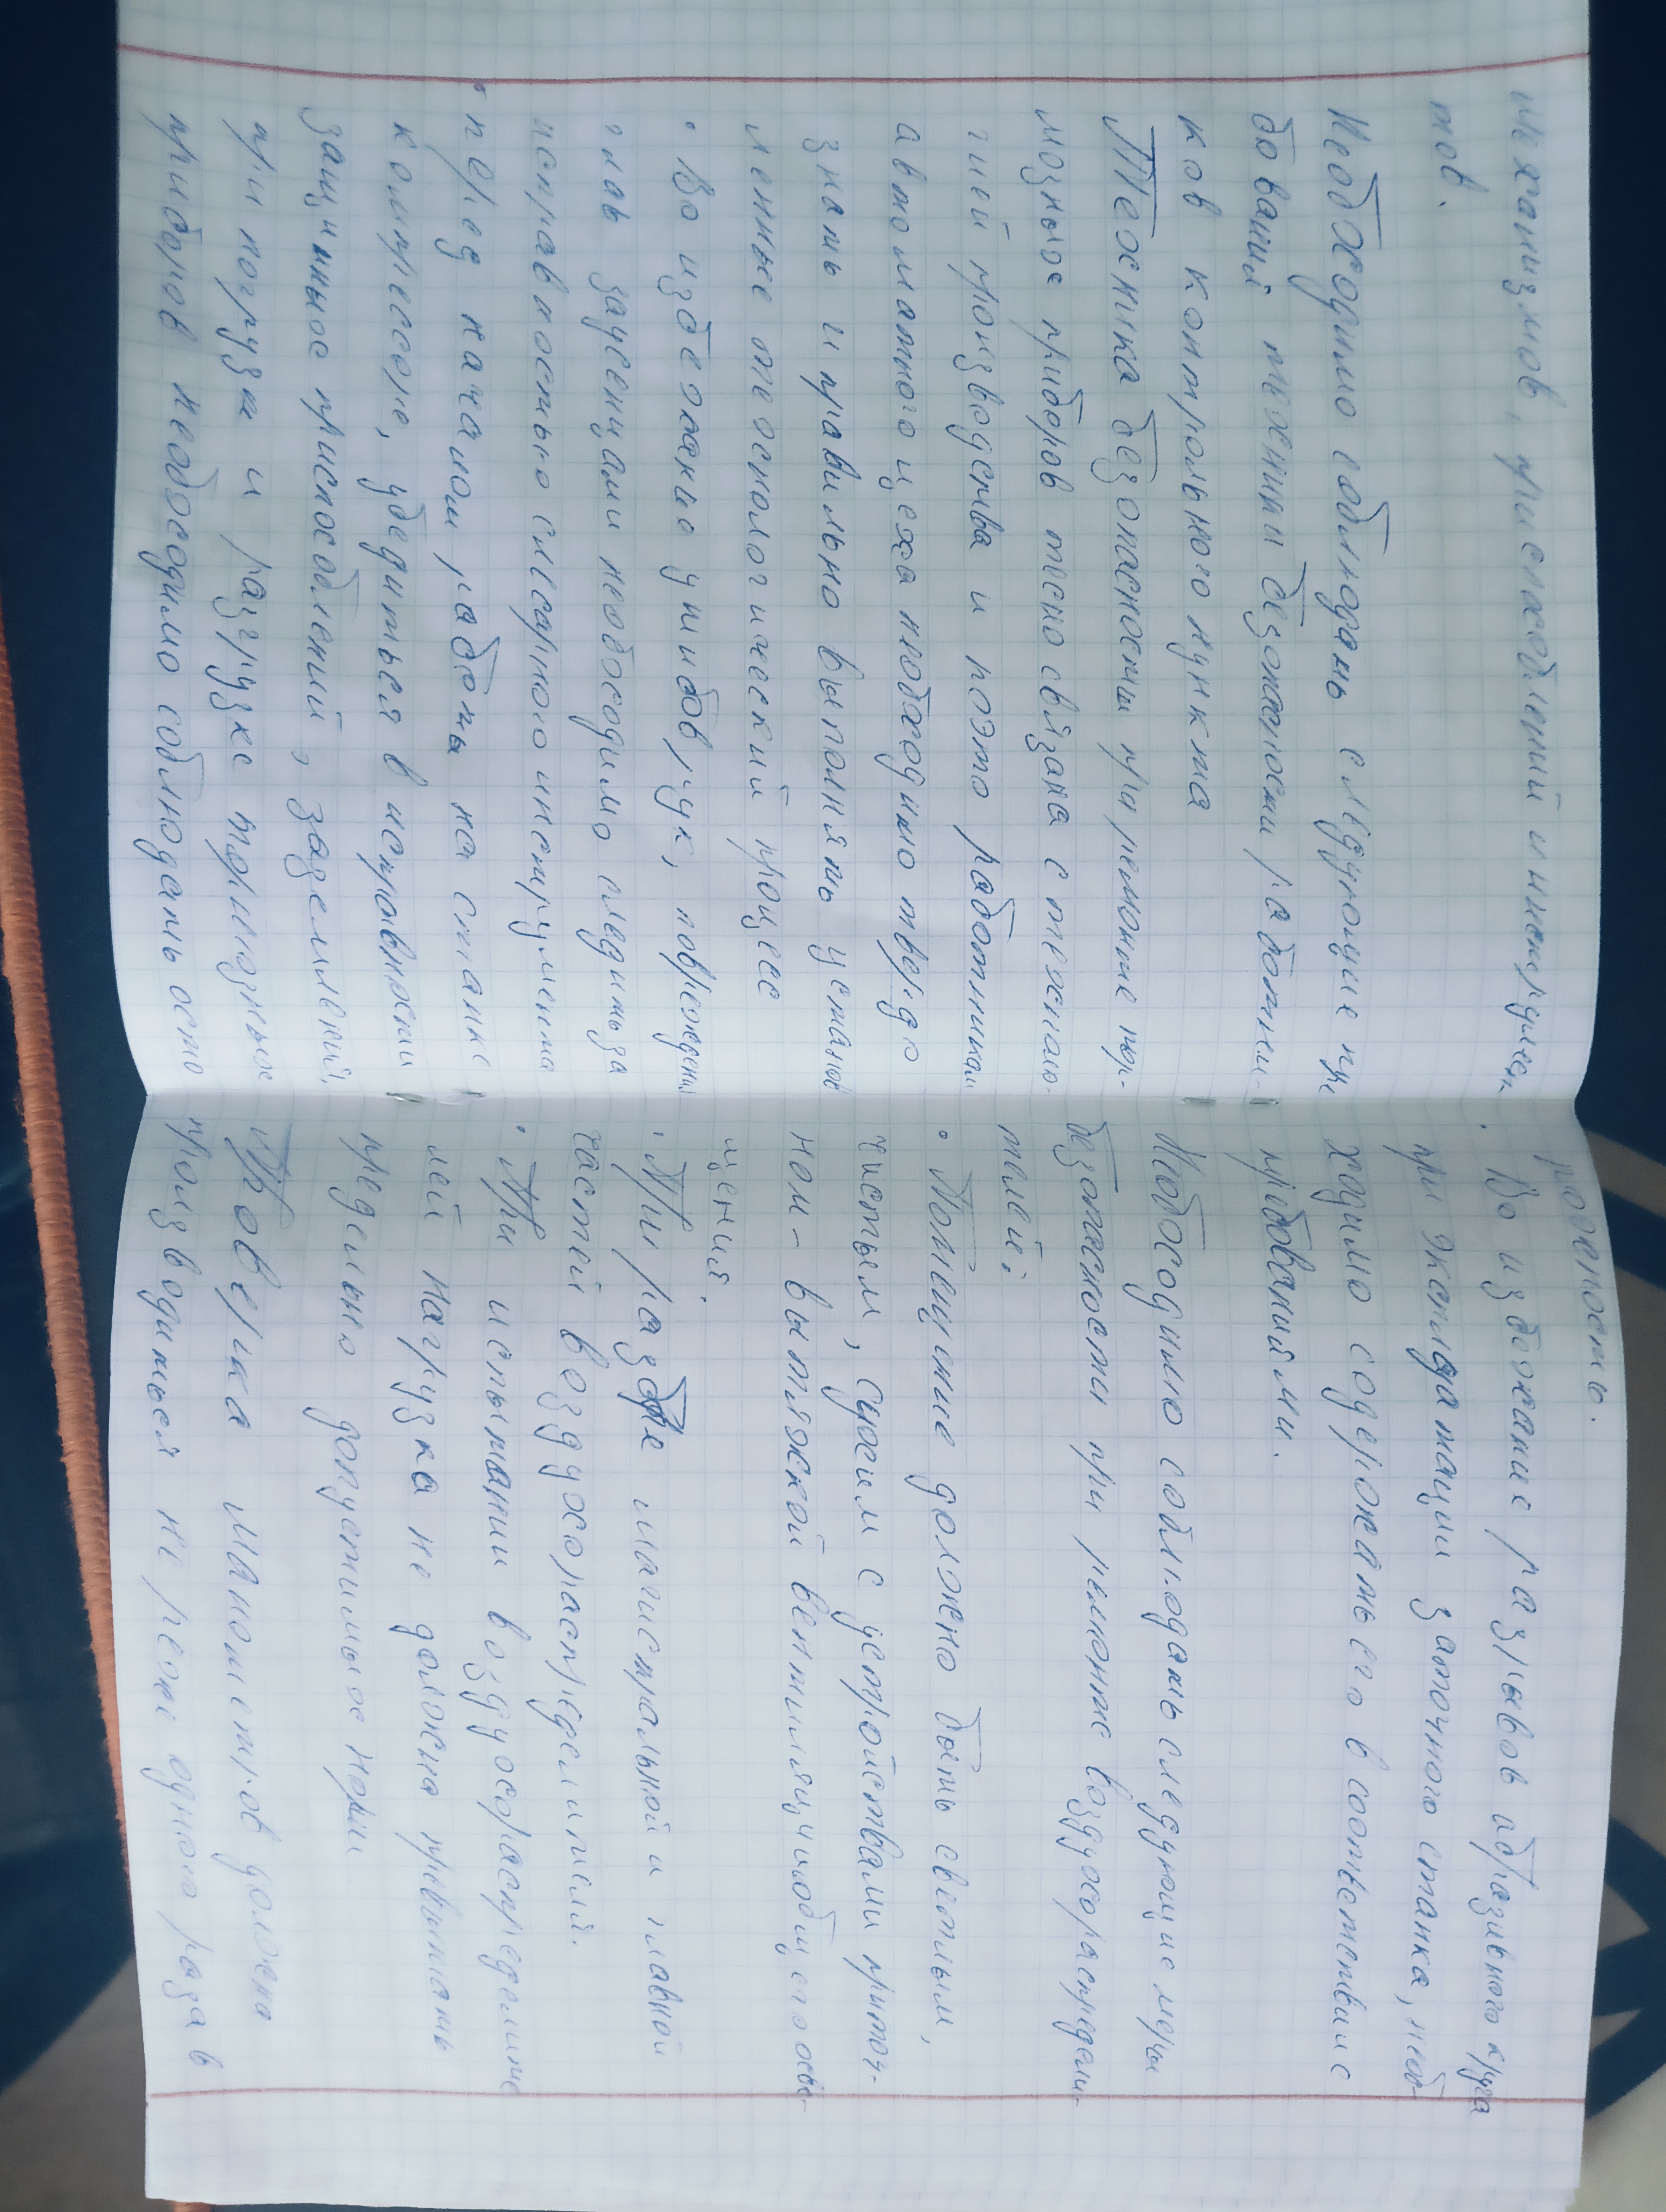 механизмов, приспособлений и инструмен-
тов.
Необходимо соблюдать следующие тре
бований техники безопасности работни-
ков контрольного пункта
Техника безопасности при ремонте тор-
мозных приборов тесно связана с техноло-
гией производства и поэто работникам
автоматного цеха необходимо твердо
знать и правильно выполнять установ
ленные технологический процесс
• Во избежание ушибов рук, поврежден
глаз зауценцами необходимо следить за
исправностью слесарного инструмента
• перед началом работы на станке
компрессоре, убедиться в исправности
защитных приспособлений, заземлений,
при погрузи и разгрузке тормозных
приборов необходимо соблюдать осто
рожность.
• Во избежание разрывов абразивного круга
при эксплуатации заточного станка, необ-
ходимо содержать его в соответствие
требованиями.
Необходимо соблюдать следующие меры
безопасности при ремонте воздухораспредели-
телей:
• Помещение должно быть светлым,
чистым, сухим с устройствами приточ-
ном- вытяжской вентиляции общего осве-
щения.
• При разборе магистральной и главной
частей воздухораспределителя.
• При испытании воздухораспределите
лей нагрузка не должна превышать
предельно допустимых норм.
Поверка манометров должна
производиться не реже одного раза в